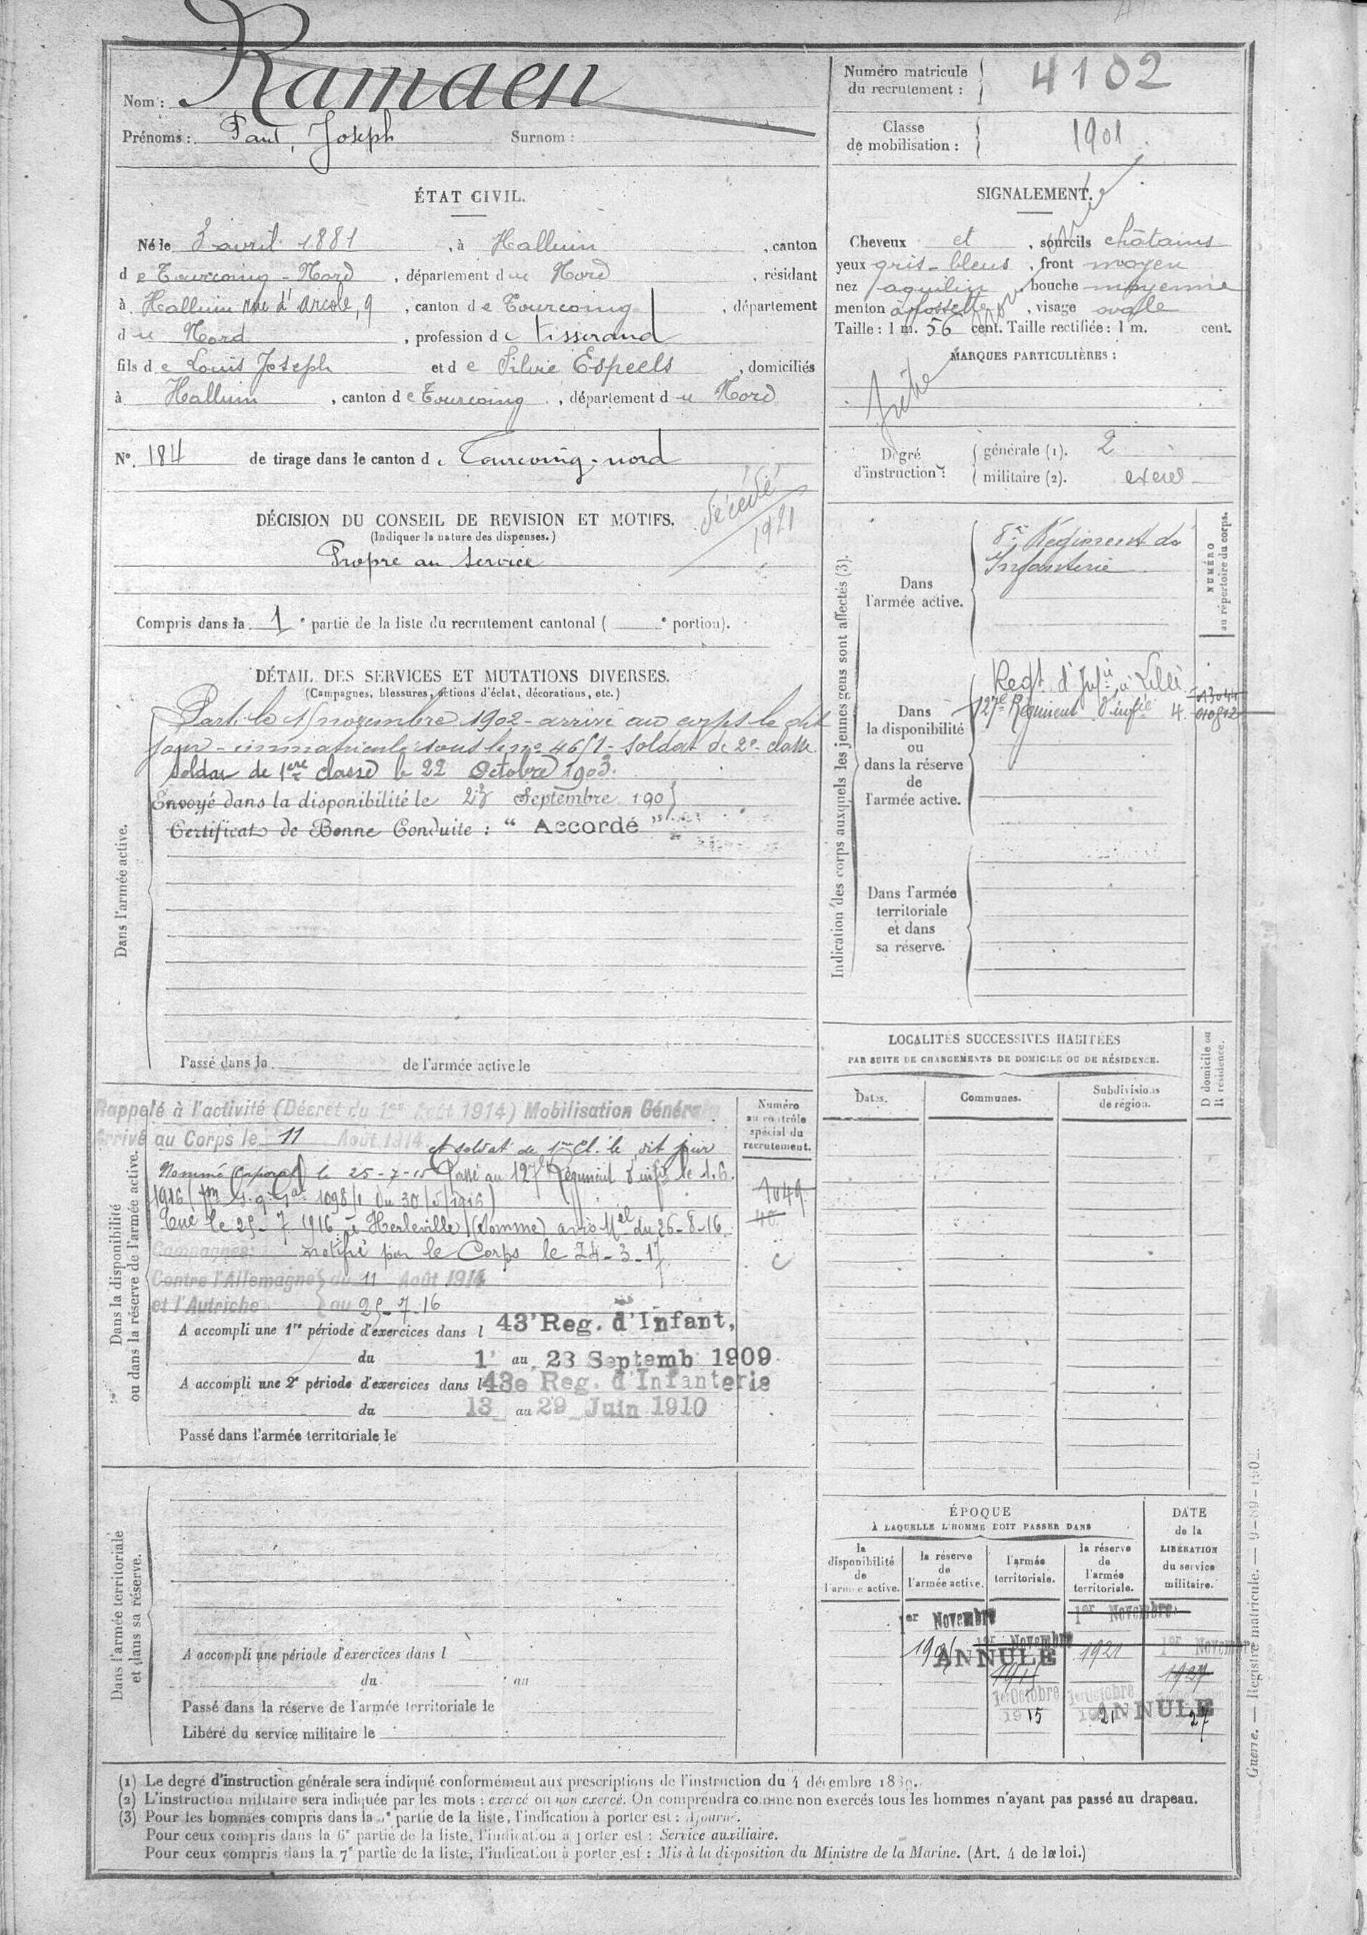 Nom : Ramaen
Prénoms : Paul, Joseph Surnom :
Numéro matricule du recrutement : 4102
Classe de mobilisation : 1901
ÉTAT CIVIL.
Né le 3 avril 1881, à Halluin, canton
de Tourcoing-Nord, département du Nord, résidant
à Halluin rue d'Arcole, 9, canton de Tourcoing, département
du Nord, profession de tisserand
fils de Louis Joseph et de Silvie Espeels, domiciliés
à Halluin, canton de Tourcoing, département du Nord
N° 184 de tirage dans le canton de Tourcoing-nord
SIGNALEMENT.
Cheveux et sourcils châtains
yeux gris-bleus, front moyen
nez aquilin, bouche moyenne
menton à fossette, visage ovale
Taille : 1 m. 56 cent. Taille rectifiée : 1 m. cent.
MARQUES PARTICULIÈRES :
Degré d'instruction : générale (1). 2
militaire (2). exercé
DÉCISION DU CONSEIL DE REVISION ET MOTIFS.
(Indiquer la nature des dispenses.)
décédé
1921
Propre au service
Compris dans la 1e partie de la liste du recrutement cantonal ( e portion).
DÉTAIL DES SERVICES ET MUTATIONS DIVERSES.
(Campagnes, blessures, actions d'éclat, décorations, etc.)
Dans l'armée active.
Parti le 15 novembre 1902 - arrivé au corps le dit
jour - immatriculé sous le no 4651 - soldat de 2e classe
Soldat de 1ère classe le 22 Octobre 1903.
Envoyé dans la disponibilité le 23 Septembre 1905
Certificat de Bonne Conduite : " Accordé "
Passé dans la de l'armée active le
Indication des corps auxquels les jeunes gens sont affectés (3).
NUMÉRO au répertoire du corps.
Dans l'armée active.
8e Régiment d'Infanterie
Dans la disponibilité ou dans la réserve de l'armée active.
Regt. d'Infie à Lille
127e Régiment d'infie
Dans l'armée territoriale et dans sa réserve.
LOCALITÉS SUCCESSIVES HABITÉES
PAR SUITE DE CHANGEMENTS DE DOMICILE OU DE RÉSIDENCE.
Dates. Communes. Subdivisions de région. D domicile ou R résidence.
Dans la disponibilité ou dans la réserve de l'armée active.
Numéro au contrôle spécial du recrutement.
1049
Rappelé à l'activité (Décret du 1er Août 1914) Mobilisation Générale
Arrivé au Corps le 11 Août 1914 et soldat de 1ère Cl. le dit jour
Nommé Caporal le 25-7-15 Passé au 127e Régiment d'infie le 1.6.
1916 (30/5/1916)
Tué le 25-7 1916 à Herleville (Somme) avis Mel du 26-8-16.
Campagnes : notifié par le Corps le 24-3-17
Contre l'Allemagne du 11 Août 1914
et l'Autriche au 25-7-16
A accompli une 1re période d'exercices dans l 43e Reg. d'Infant,
du 1er au 23 Septemb 1909
A accompli une 2e période d'exercices dans l 43e Reg. d'Infanterie
du 13 au 29 Juin 1910
Passé dans l'armée territoriale le
Dans l'armée territoriale et dans sa réserve.
A accompli une période d'exercices dans l
du au
Passé dans la réserve de l'armée territoriale le
Libéré du service militaire le
ÉPOQUE
À LAQUELLE L'HOMME DOIT PASSER DANS
la disponibilité de l'armée active. la réserve de l'armée active. l'armée territoriale. la réserve de l'armée territoriale. DATE de la LIBÉRATION du service militaire.
1er Novembre 1er Novembre
1er Novembre 1921 1er Novembre
ANNULE 1927
1er Octobre 1er Octobre
1915 1921 ANNULE 27
(1) Le degré d'instruction générale sera indiqué conformément aux prescriptions de l'instruction du 4 décembre 1889.
(2) L'instruction militaire sera indiquée par les mots : exercé ou non exercé. On comprendra comme non exercés tous les hommes n'ayant pas passé au drapeau.
(3) Pour les hommes compris dans la 5e partie de la liste, l'indication à porter est : Ajourné.
Pour ceux compris dans la 6e partie de la liste, l'indication à porter est : Service auxiliaire.
Pour ceux compris dans la 7e partie de la liste, l'indication à porter est : Mis à la disposition du Ministre de la Marine. (Art. 4 de la loi.)
Guerre. — Registre matricule. —